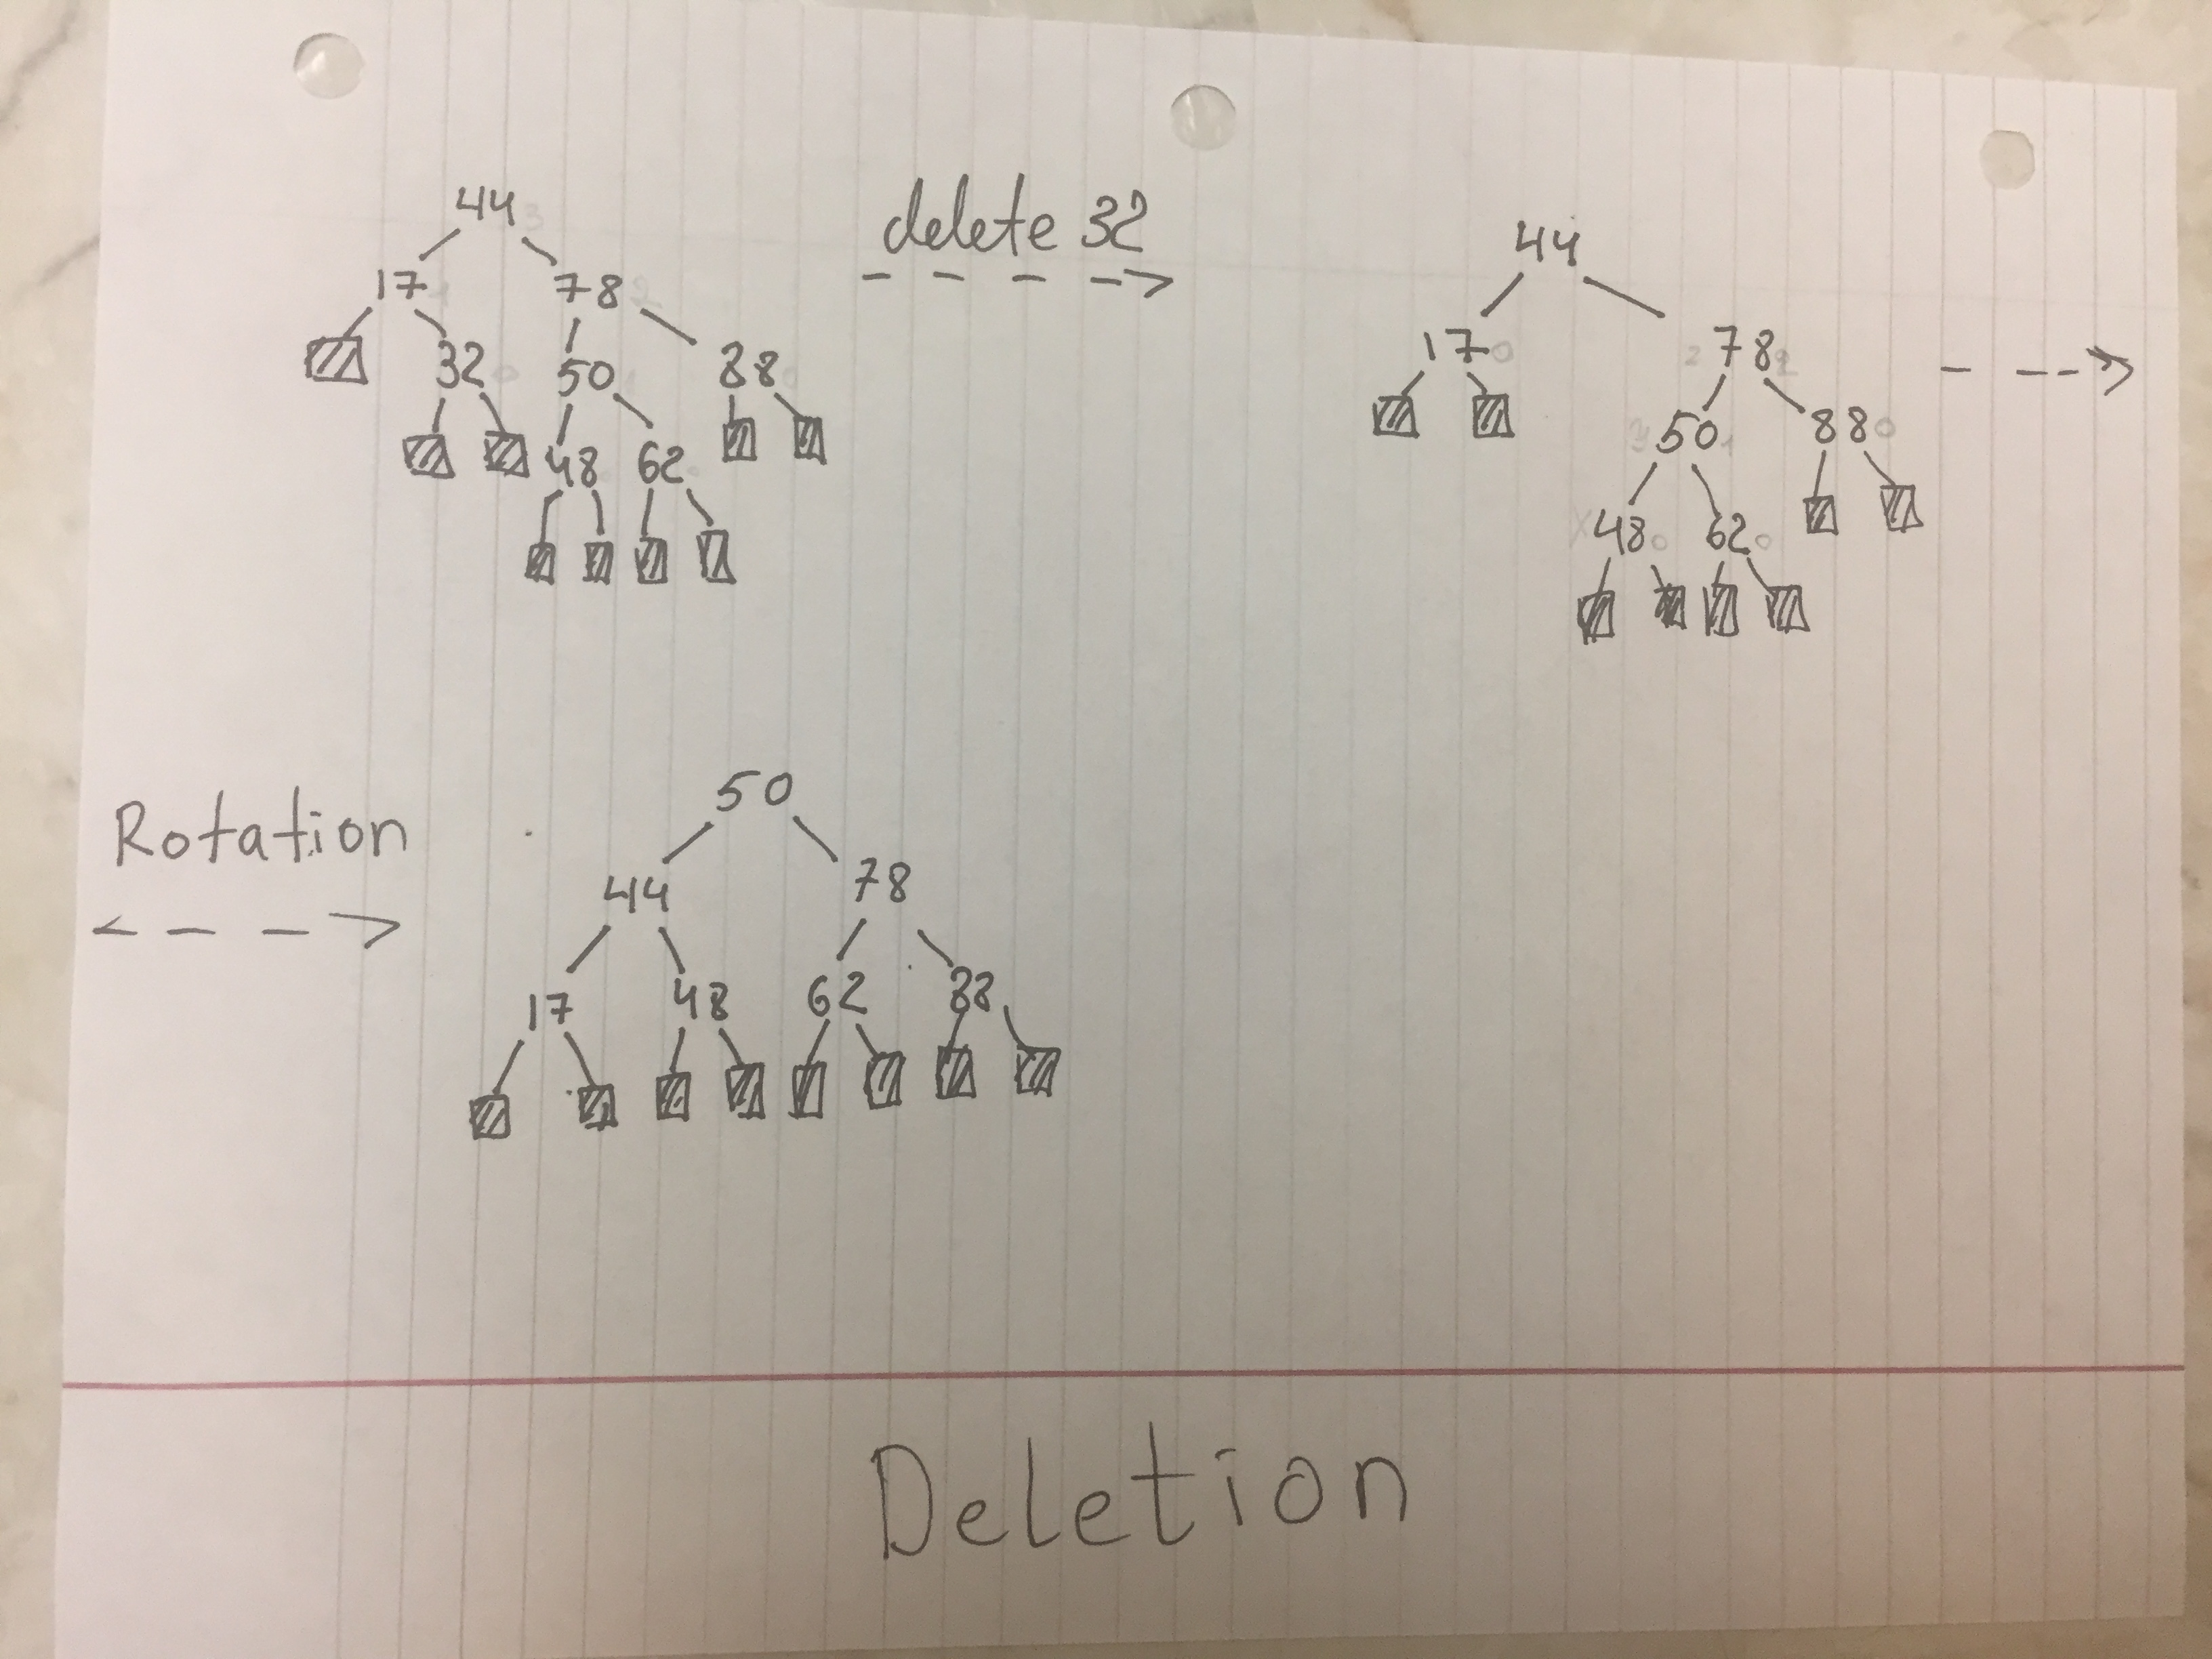 44
17 78
32 50 88
48 62
delete 32
44
17 78
50 88
48 62
Rotation
50
44 78
17 48 62 88
Deletion